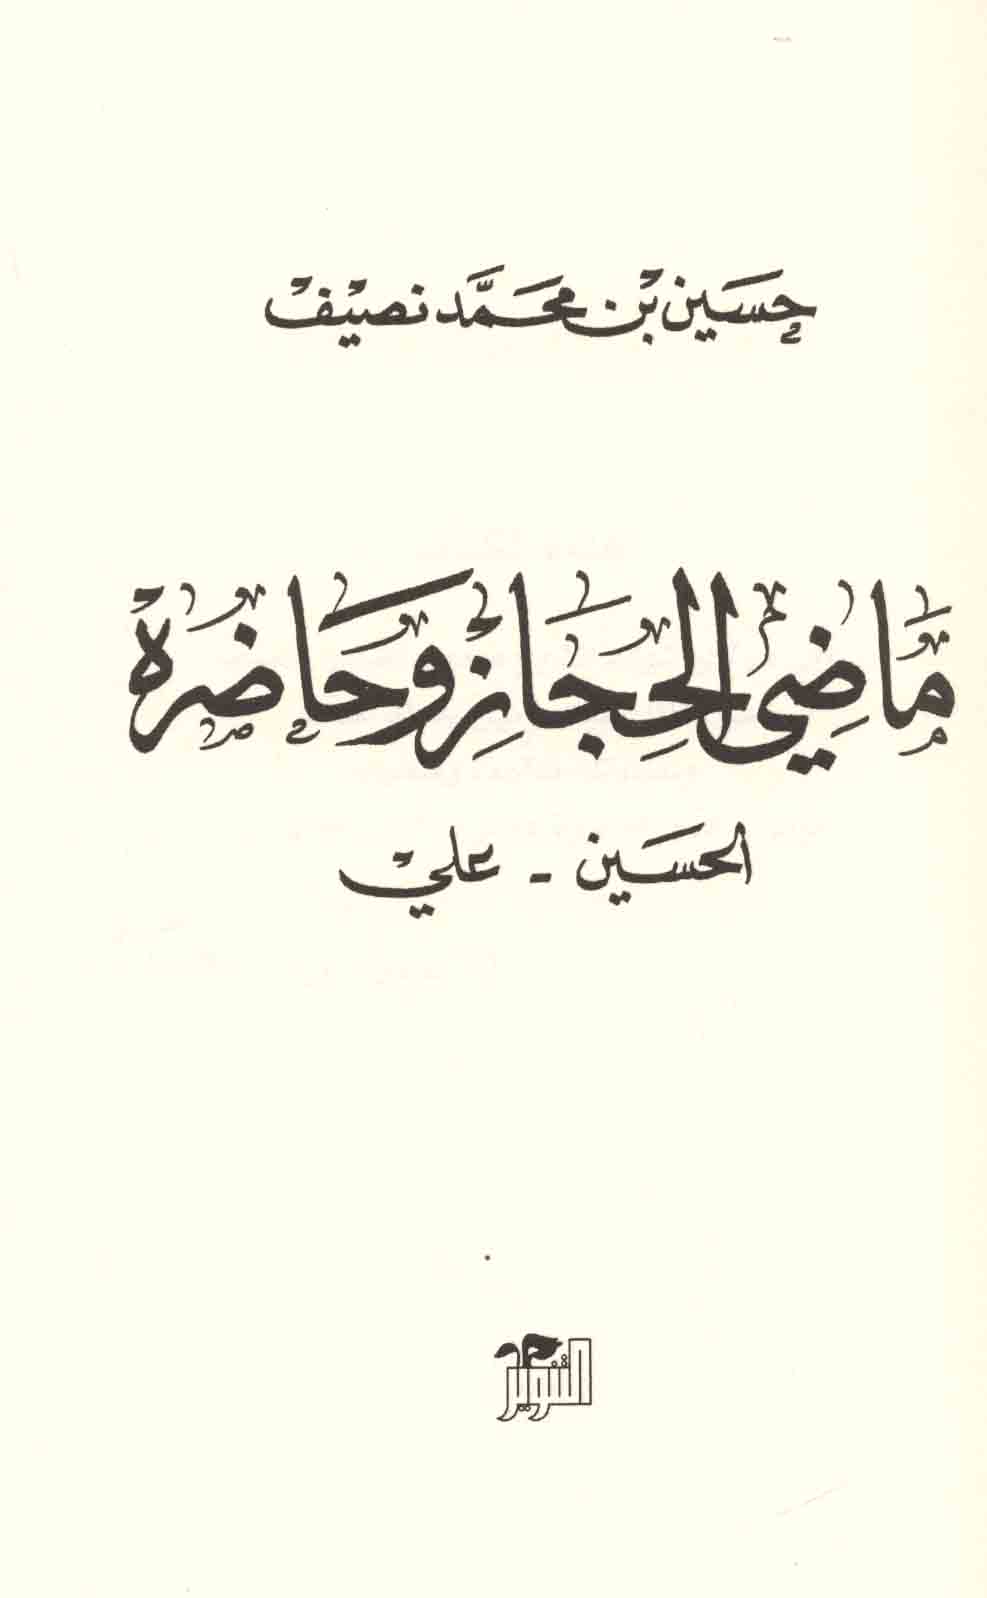 حسين بن محمَّد نصيف
مَاضِي الحِجَازِ وَحَاضرهُ
الحسين - علي
التنوير